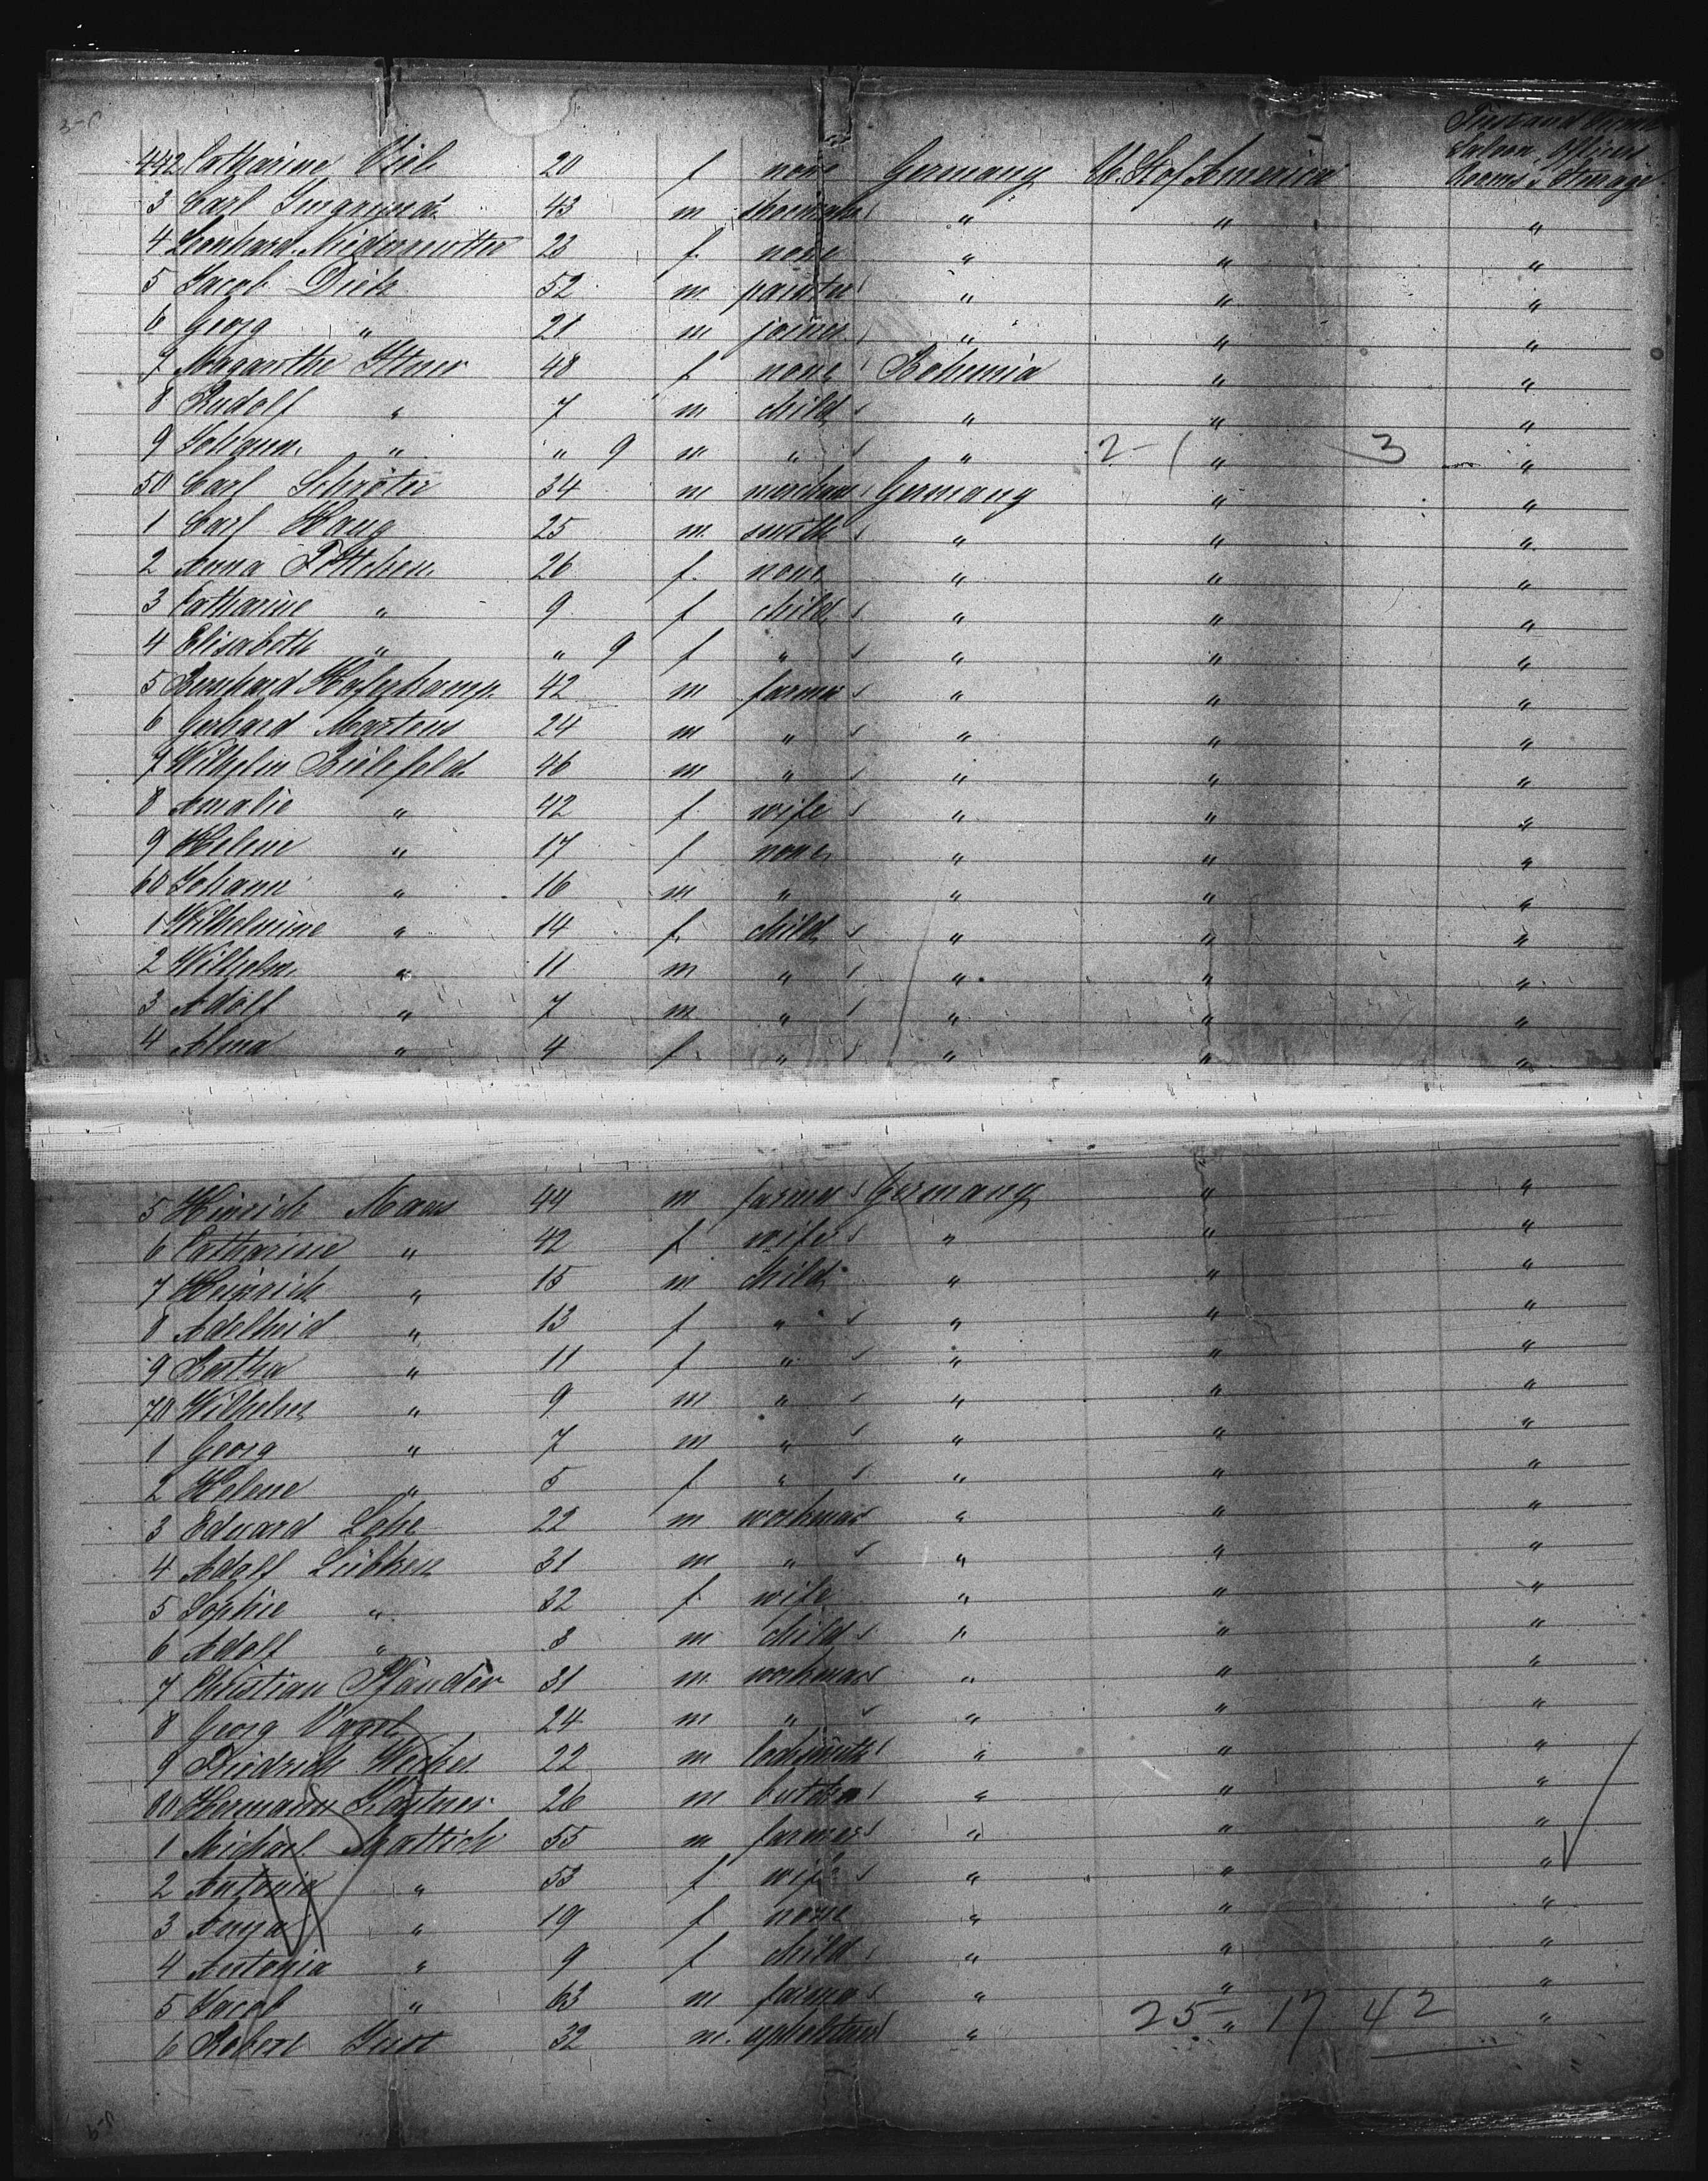 First and Second
Saloon, Officers
Rooms & Steerage
442 Catharine Vieh 20 f none Germany U. S. of America
3 Carl 43 m shoemaker " " "
4 Leonhard 23 f. none " " "
5 Jacob Dietz 52 m painter " " "
6 Georg " 21 m joiner " " "
7 Magarethe Ittner 48 f none Bohemia " "
8 Rudolf " 7 m child " " "
9 Johann " " 9 m " " 2-1 " 3 "
50 Carl Schröter 34 m merchant Germany " "
1 Carl Haug 25 m. smith " " "
2 Anna Föttchen 26 f. none " " "
3 Catharine " 9 f child " " "
4 Elisabeth " " 9 f " " " "
5 Bernhard Haferkamp 42 m farmer " " "
6 Gerhard Martens 24 m " " " "
7 Wilhelm Bielefeld 46 m " " " "
8 Amalie " 42 f. wife " " "
9 Helene " 17 f none " " "
60 Johann " 16 m " " " "
1 Wilhelmine " 14 f. child " " "
2 Wilhelm " 11 m " " " "
3 Adolf " 7 m " " " "
4 Alma " 4 f. " " " "
5 Hinrich Maas 44 m farmer Germany " "
6 Catharine " 42 f wife " " "
7 Heinrich " 15 m child " " "
8 Adelheid " 13 f " " " "
9 Bertha " 11 f " " " "
70 Wilhelm " 9 m " " " "
1 Georg " 7 m " " " "
2 Helene " 5 f " " " "
3 Eduard Lohe 22 m workman " " "
4 Adolf Lübken 31 m " " " "
5 Sophie " 32 f wife " " "
6 Adolf " 3 m child " " "
7 Christian Pfänder 31 m workman " " "
8 Georg Vogel 24 m " " " "
9 Diedrich Wichers 22 m locksmith " " "
80 Hermann Köstner 26 m butcher " " "
1 Michael Mattich 55 m farmer " " "
2 Antonia " 53 f wife " " "
3 Anna " 19 f none " " "
4 Antonia " 9 f child " " "
5 Jacob " 63 m farmer " " "
6 Robert Just 32 m. upholsterer " 25 - " 17 42 "